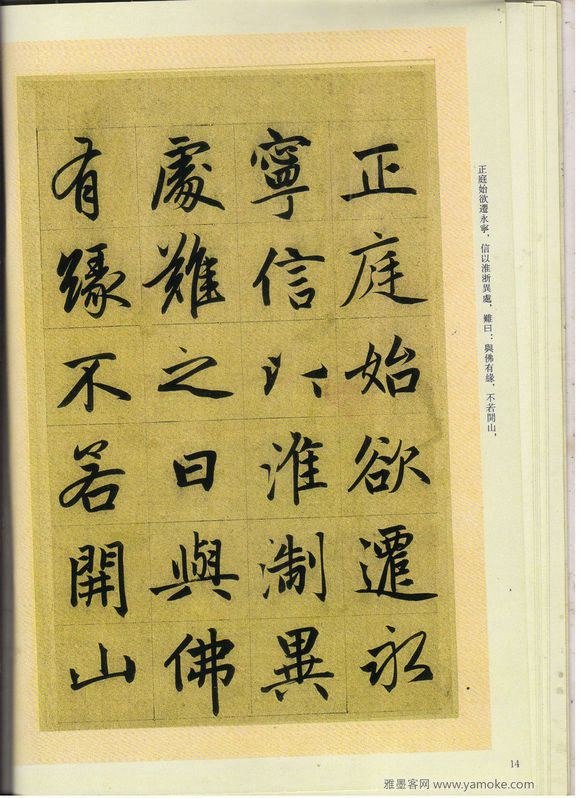 正庭始欲遷永
寧信以淮淛異
處難之曰與佛
有緣不若開山
正庭始欲遷永寧，信以淮浙異處，難曰：與佛有緣，不若開山，
14
雅墨客网 www.yamoke.com